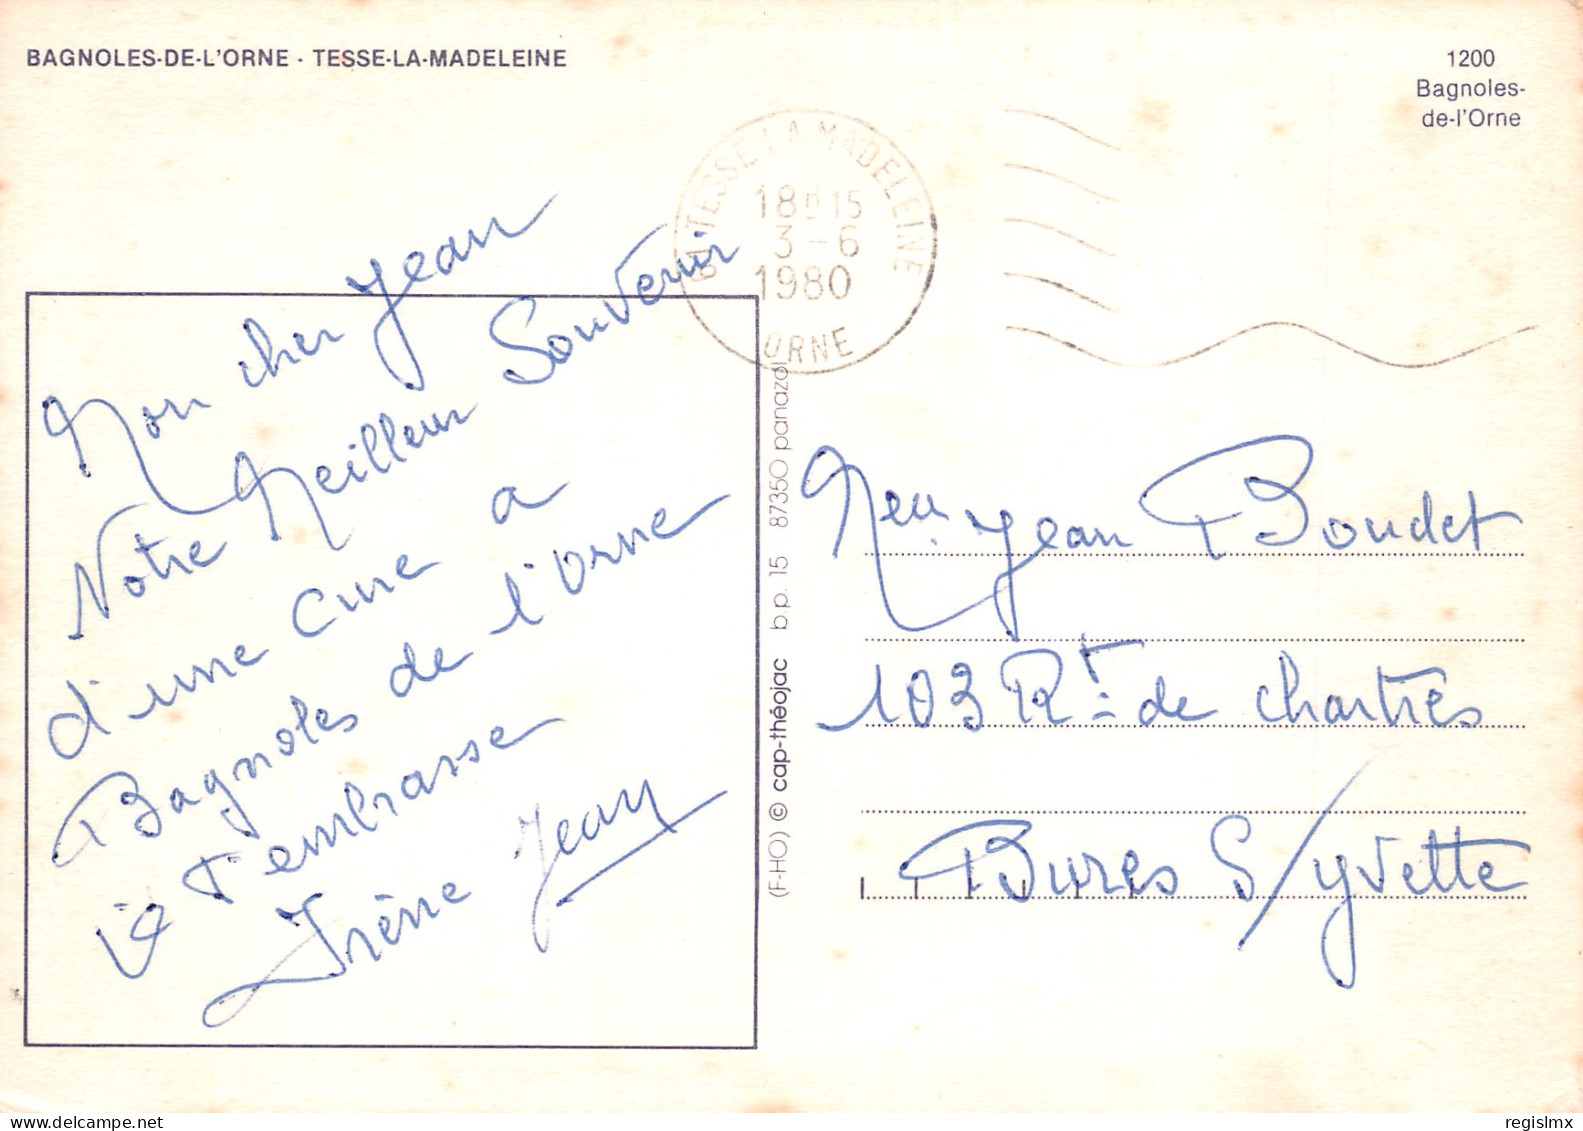 BAGNOLES-DE-L'ORNE - TESSE-LA-MADELEINE
1200
Bagnoles-
de-l'Orne
TESSE-LA-MADELEINE
18H15
3-6
1980
ORNE
Mon cher Jean
Notre Meilleur Souvenir
d'une cure a
Bagnoles de l'Orne
Je t'embrasse
Irène Jean
(F-HO) © cap-théojac b.p. 15 87350 panazol
Jean Boudet
103 Rt de chartres
Bures S/yvette
regislmx
delcampe.net